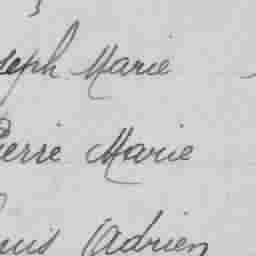 seph Marie
ierre Marie
ouis Adrien